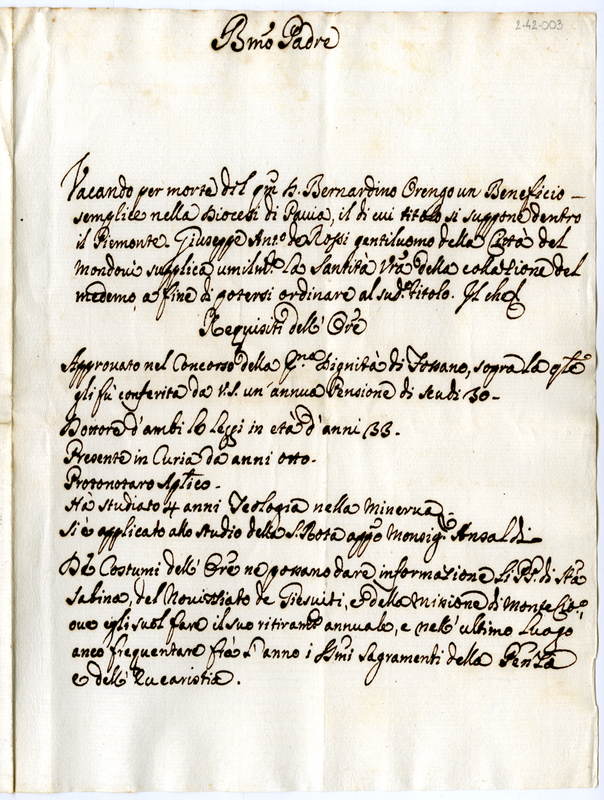 2-42-003
Bmo Padre
Vacando per morte del qm D. Bernardino Orengo un Beneficio
semplice nella Diocesi di Pavia, il di cui titolo si suppone dentro
il Piemonte. Giuseppe Anto. de Rossi gentiluomo della Città del
Mondovì supplica umilmte. la Santità Vra. della collazione del
medemo, a fine di potersi ordinare al sudo. titolo. Il che
Requisiti dell' Ore
Approvato nel Concorso della pma Dignità di Fossano, sopra la qle
gli fù conferita da V.S. un' annua Pensione di scudi 30-
Dottore d'ambi le Leggi in età d'anni 33-
Presente in Curia da anni otto-
Protonotaro Aplico-
Hà studiato 4 anni Teologia nella Minerva-
Si è applicato allo studio della S. Rota appo Monsigr. Ansaldi
De Costumi dell' Ore ne possano dare informazione li PP. di Sta
Sabina, del Novizziato de Giesuiti, e della Missione di Monte Cito.,
ove egli suol fare il suo ritiramto annuale, e nell' ultimo Luogo
anco frequentare frà l'anno i SSmi Sagramenti della Penza
e dell' Eucaristia.